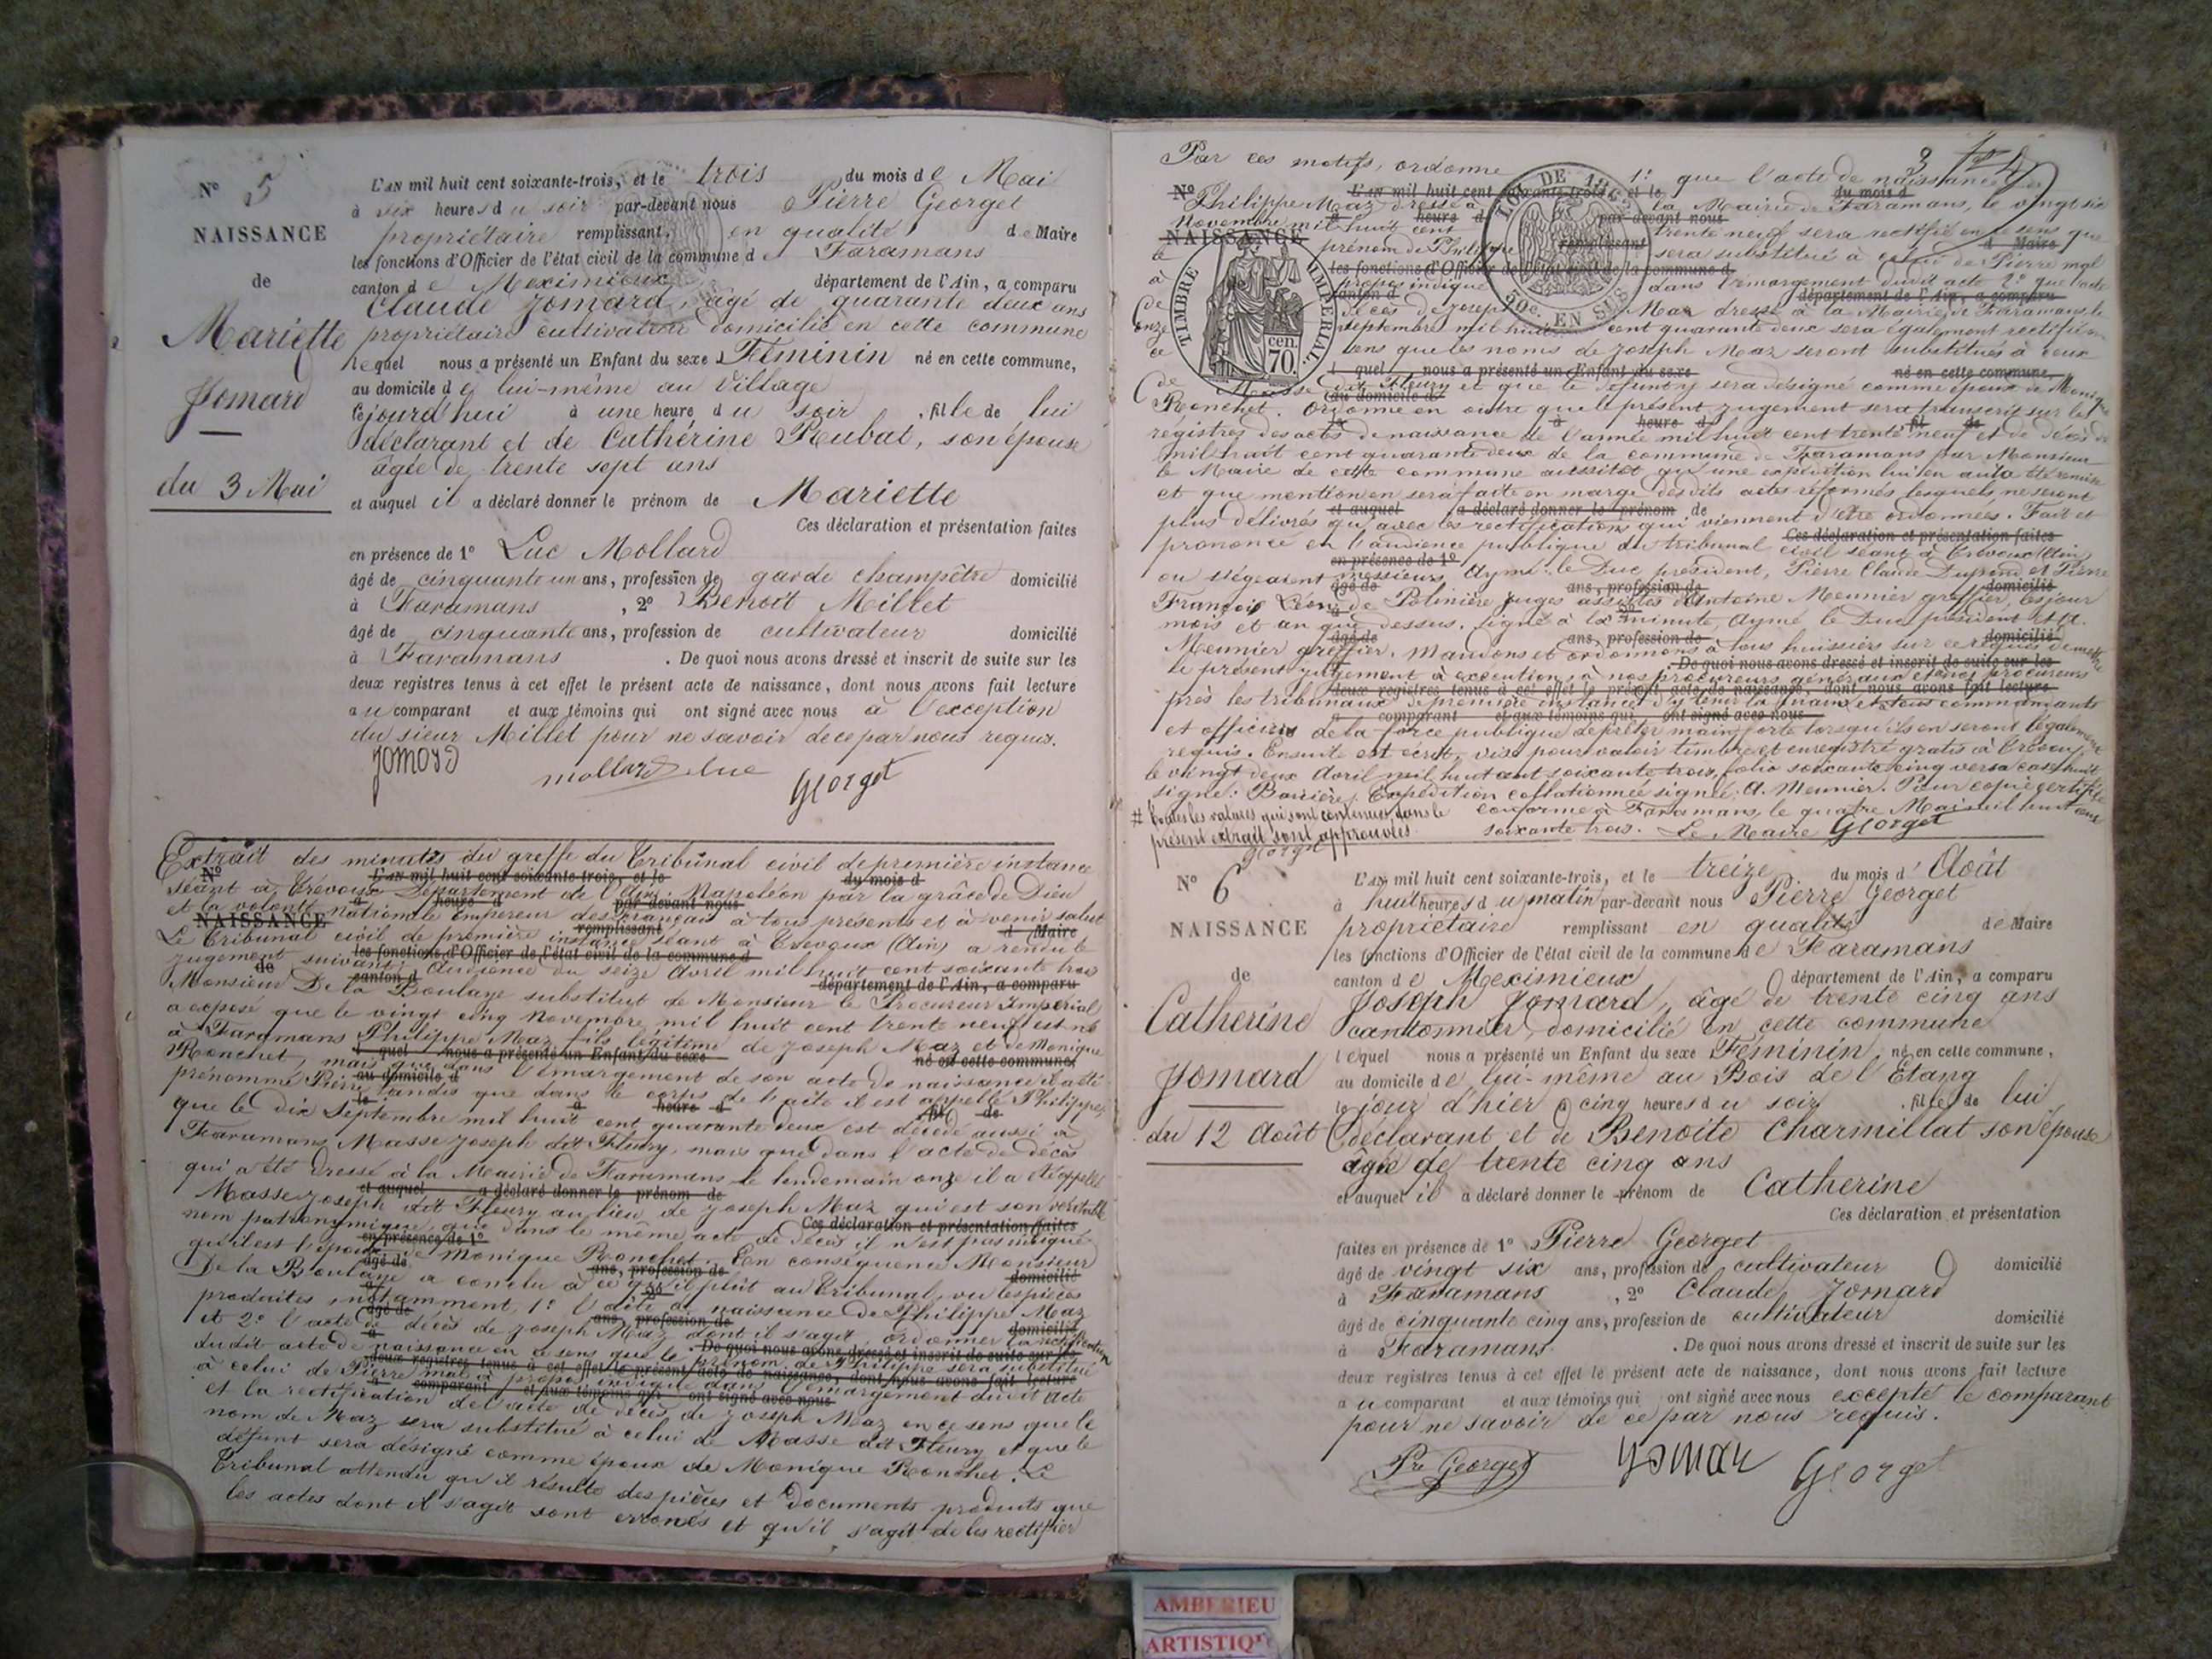 N° 5
NAISSANCE
de
Mariette
Jomard
du 3 Mai
L'AN mil huit cent soixante-trois, et le trois du mois de Mai
à six heures du soir par-devant nous Pierre Georget
propriétaire remplissant en qualité de Maire
les fonctions d'Officier de l'état civil de la commune de Faramans
canton de Meximieux département de l'Ain, a comparu
Claude Jomard, âgé de quarante deux ans
propriétaire cultivateur domicilié en cette commune
lequel nous a présenté un Enfant du sexe Féminin né en cette commune,
au domicile de lui-même au Village
Cejourd'hui à une heure du soir, fille de lui
déclarant et de Cathérine Rubat, son épouse
âgée de trente sept ans
et auquel il a déclaré donner le prénom de Mariette
Ces déclaration et présentation faites
en présence de 1° Luc Mollard
âgé de cinquante un ans, profession de garde champêtre domicilié
à Faramans, 2° Benoit Millet
âgé de cinquante ans, profession de cultivateur domicilié
à Faramans. De quoi nous avons dressé et inscrit de suite sur les
deux registres tenus à cet effet le présent acte de naissance, dont nous avons fait lecture
au comparant et aux témoins qui ont signé avec nous à l'exception
du sieur Millet pour ne savoir de ce par nous requis.
Jomard mollard luc Georget
Extrait des minutes du greffe du Tribunal civil de première instance
séant à Trévoux Département de l'Ain. Napoléon par la grâce de Dieu
et la volonté nationale Empereur des français à tous présents et à venir salut
Le Tribunal civil de première instance séant à Trévoux (Ain) a rendu le
jugement suivant: Audience du seize Avril mil huit cent soixante trois
Monsieur De la Boulaye substitut de Monsieur le Procureur Impérial
a exposé que le vingt cinq Novembre mil huit cent trente neuf est né
à Faramans Philippe Maz fils légitime de Joseph Maz et de Monique
Ronchet, mais que dans l'émargement de son acte de naissance il a été
prénommé Pierre tandis que dans le corps de l'acte il est appelé Philippe,
que le dix Septembre mil huit cent quarante deux est décédé aussi à
Faramans Masse Joseph dit Fleury, mais que dans l'acte de décès
qui a été dressé à la Mairie de Faramans le lendemain onze il a été appelé
Masse Joseph dit Fleury au lieu de Joseph Maz qui est son véritable
nom patronymique, que dans le même acte de décès il n'est pas indiqué
qu'il est l'époux de Monique Ronchet. En conséquence Monsieur
De la Boulaye a conclu à ce qu'il plût au Tribunal, vu les pièces
produites, notamment, 1° l'acte de naissance de Philippe Maz
et 2° l'acte de décès de Joseph Maz dont il s'agit, ordonner la rectification
dudit acte de naissance en ce sens que le prénom de Philippe sera substitué
à celui de Pierre mal à propos indiqué dans l'émargement dudit acte
et la rectification de l'acte de décès de Joseph Maz en ce sens que le
nom de Maz sera substitué à celui de Masse dit Fleury et que le
défunt sera désigné comme époux de Monique Ronchet. Le
Tribunal attendu qu'il résulte des pièces et documents produits que
les actes dont il s'agit sont erronés et qu'il s'agit de les rectifier
3
Par ces motifs, ordonne 1° que l'acte de naissance de
Philippe Maz dressé à la Mairie de Faramans, le vingt six
Novembre mil huit cent trente neuf sera rectifié en ce sens que
le prénom de Philippe sera substitué à celui de Pierre mal
à propos indiqué dans l'émargement dudit acte 2° que l'acte
de décès de Joseph Maz dressé à la Mairie de Faramans, le
onze septembre mil huit cent quarante deux sera également rectifié en
ce sens que les noms de Joseph Maz seront substitués à ceux
de Masse dit Fleury et que le défunt y sera désigné comme époux de Monique
Ronchet. Ordonne en outre que le présent jugement sera transcrit sur les
régistres des actes de naissance de l'année mil huit cent trente neuf et de décès de
mil huit cent quarante deux de la commune de Faramans par Monsieur
le Maire de cette commune aussitôt qu'une expédition lui en aura été remise
et que mention en sera faite en marge desdits actes réformés lesquels ne seront
plus délivrés qu'avec les rectifications qui viennent d'être ordonnées. Fait et
prononcé en l'audience publique du tribunal civil séant à Trévoux (Ain)
où siégeaient messieurs Aymé le Duc président, Pierre Claude Dupond et Pierre
François Léon de Polinière juges assistés d'Antoine Meunier greffier, les jour
mois et an que dessus. Signé à la minute, Aymé le Duc président et A.
Meunier greffier. Mandons et ordonnons à tous huissiers sur ce requis de mettre
le présent jugement à exécution, à nos procureurs généraux et à nos procureurs
près les tribunaux de première instance d'y tenir la main, et à tous commandants
et officiers de la force publique de prêter main forte lorsqu'ils en seront légalement
requis. Ensuite est écrit, visé pour valoir timbre et enregistré gratis à Trévoux
le vingt deux Avril mil huit cent soixante trois, folio soixante cinq verso case huit
signé: Barrière. Expédition collationnée signée: A. Meunier. Pour copie certifiée
conforme à Faramans, le quatre Mai mil huit cent
soixante trois. Le Maire Georget
# toutes les ratures qui sont contenues dans le
présent extrait sont approuvées.
Georget
TIMBRE IMPÉRIAL
70. cen.
LOI DE 1862
20c. EN SUS
N° 6
NAISSANCE
de
Catherine
Jomard
du 12 Août
L'AN mil huit cent soixante-trois, et le treize du mois d'Août
à huit heures du matin par-devant nous Pierre Georget
propriétaire remplissant en qualité de Maire
les fonctions d'Officier de l'état civil de la commune de Faramans
canton de Meximieux département de l'Ain, a comparu
Joseph Jomard, âgé de trente cinq ans
cantonnier, domicilié en cette commune
lequel nous a présenté un Enfant du sexe Féminin né en cette commune,
au domicile de lui-même au Bois de l'Etang
le jour d'hier à cinq heures du soir, fille de lui
déclarant et de Benoite Charmillat son épouse
âgée de trente cinq ans
et auquel il a déclaré donner le prénom de Catherine
Ces déclaration et présentation
faites en présence de 1° Pierre Georget
âgé de vingt six ans, profession de cultivateur domicilié
à Faramans, 2° Claude Jomard
âgé de cinquante cinq ans, profession de cultivateur domicilié
à Faramans. De quoi nous avons dressé et inscrit de suite sur les
deux registres tenus à cet effet le présent acte de naissance, dont nous avons fait lecture
au comparant et aux témoins qui ont signé avec nous excepté le comparant
pour ne savoir de ce par nous requis.
Pre Georget Jomar Georget
AMBERIEU
ARTISTIQ